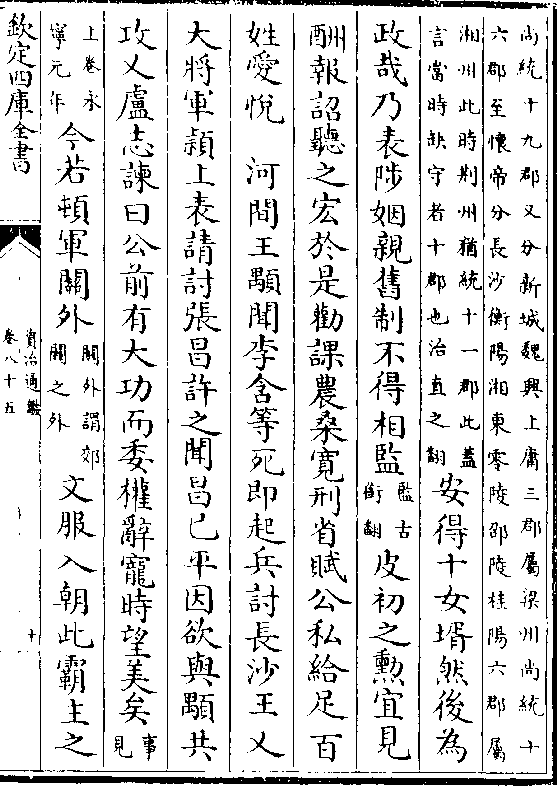 尚統十九郡又分新城魏興上庸三郡屬梁州尚統十
六郡至懷帝分長沙衡陽湘東零陵邵陵桂陽六郡屬
湘州此時荆州猶統十一郡此蓋
言當時缺守者十郡也治直之翻
安得十女壻然後為
政哉乃表陟姻親舊制不得相監
監古
銜翻
皮初之勲宜見
酬報詔聽之宏於是勸課農桑寛刑省賦公私給足百
姓愛悅　河間王顒聞李含等死即起兵討長沙王乂
大將軍穎上表請討張昌許之聞昌已平因欲與顒共
攻乂盧志諫曰公前有大功而委權辭寵時望美矣
事
見
上卷永
寧元年
今若頓軍關外
關外謂郊
關之外
文服入朝此霸主之
欽定四庫全書
資治通鑑
卷八十五
十